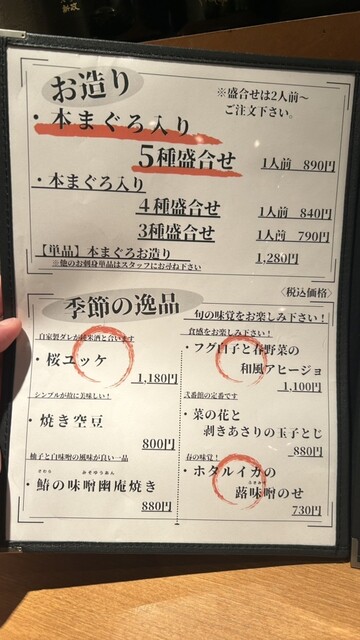 お造り
※盛合せは2人前～
ご注文下さい。
・本まぐろ入り
5種盛合せ 1人前 890円
・本まぐろ入り
4種盛合せ 1人前 840円
3種盛合せ 1人前 790円
【単品】本まぐろお造り 1,280円
※他のお刺身単品はスタッフにお尋ね下さい
〈税込価格〉
季節の逸品
旬の味覚をお楽しみ下さい！
自家製ダレが純米酒と合います
・桜ユッケ
1,180円
シンプルが故に美味しい！
・焼き空豆
800円
柚子と白味噌の風味が良い一品
さわら みそゆうあん
・鰆の味噌幽庵焼き
880円
食感をお楽しみ下さい！
・フグ白子と春野菜の
和風アヒージョ
1,100円
弐番館の定番です
・菜の花と
剥きあさりの玉子とじ
880円
春の味覚！
・ホタルイカの
ふきみそ
蕗味噌のせ
730円